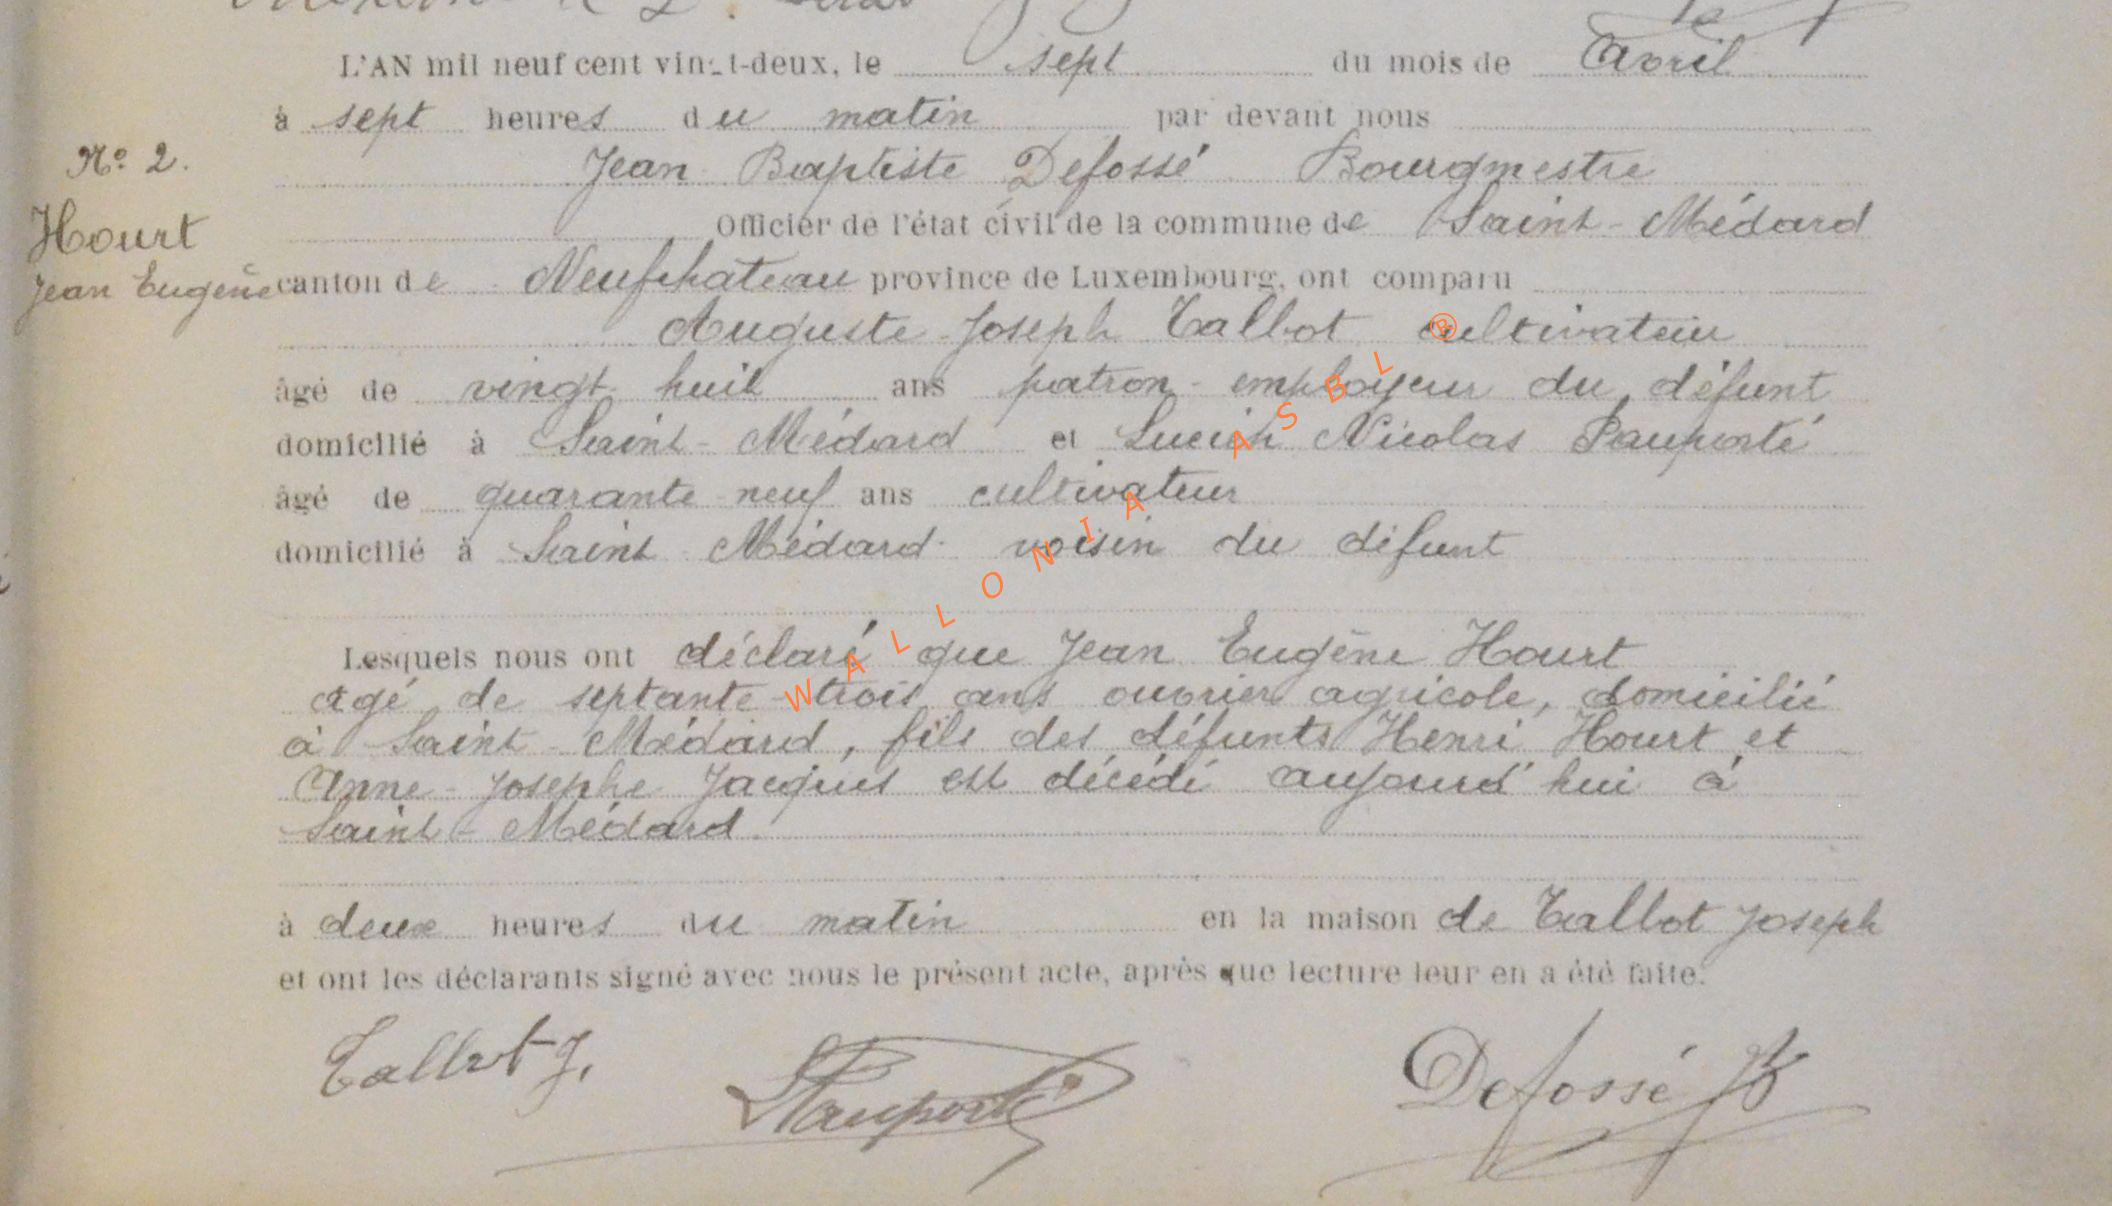 L'AN mil neuf cent vingt-deux, le sept du mois de avril
à sept heures du matin par devant nous
Nº 2.
Jean Baptiste Defossé Bourgmestre
Hourt
Officier de l'état civil de la commune de Saint-Médard
Jean Eugène
canton de Neufchateau province de Luxembourg, ont comparu
Auguste Joseph Tallbot cultivateur
âgé de vingt-huit ans patron-employeur du défunt
domicilié à Saint-Médard et Lucien Nicolas Pauporté
âgé de quarante-neuf ans cultivateur
domicilié à Saint Médard voisin du défunt
Lesquels nous ont déclaré que Jean Eugène Hourt
agé de septante-trois ans ouvrier agricole, domicilié
à Saint-Médard, fils des défunts Henri Hourt et
Anne-Josephe Jacques est décédé aujourd'hui à
Saint-Médard.
à deux heures du matin en la maison de Tallbot Joseph
et ont les déclarants signé avec nous le présent acte, après que lecture leur en a été faite.
Tallbot J. LPauporté Defossé JB
WALLONIA ASBL ®